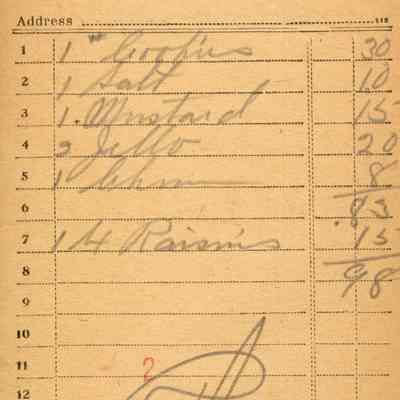 Address
1 1 " 30
2 1 Salt 10
3 1. Mustard 15
4 2 Jello 20
5 1 8
6 .83
7 1 4 Raisins 15
8 98
9
10
11 2
12